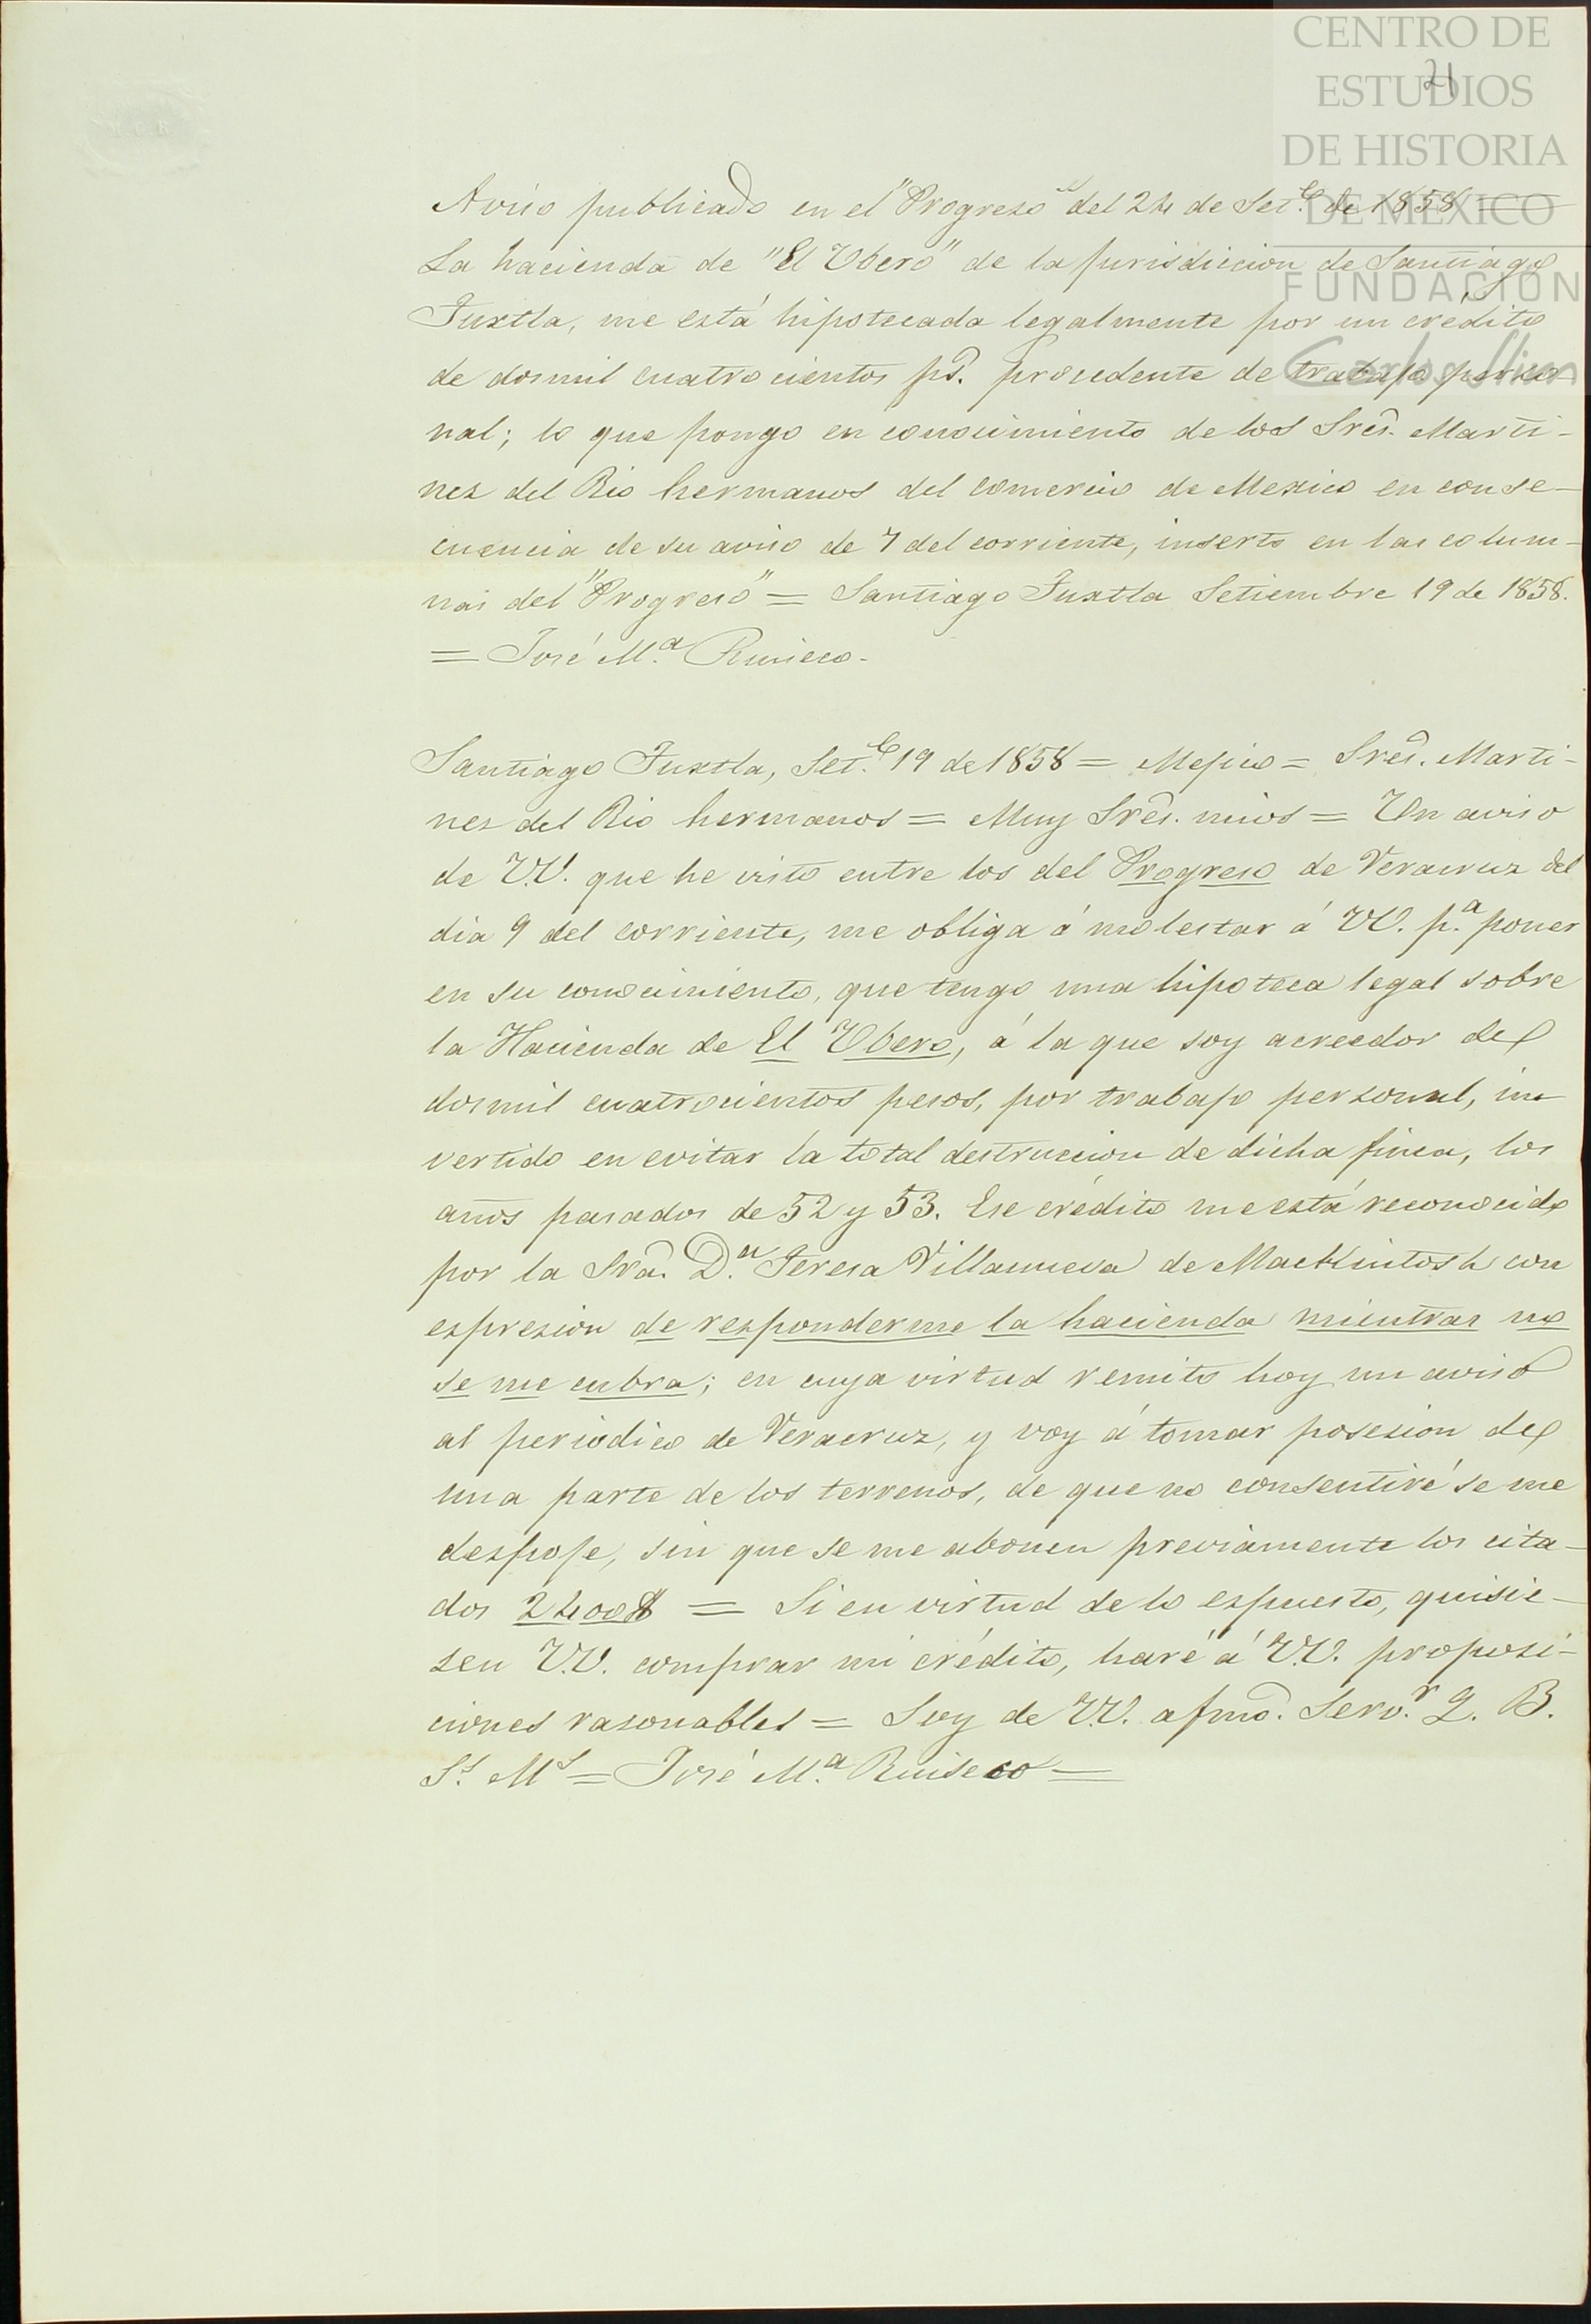 CENTRO DE
ESTUDIOS
DE HISTORIA
DE MÉXICO
FUNDACIÓN
Carlos Slim
21
Aviso publicado en el "Progreso" del 24 de Set.e de 1858 =
La hacienda de "El Uvero" de la jurisdiccion de Santiago
Tuxtla, me está hipotecada legalmente por un crédito
de dosmil cuatrocientos ps. procedente de trabajo perso-
nal; lo que pongo en conocimiento de los Sres. Marti-
nez del Rio hermanos del comercio de Mexico en conse-
cuencia de su aviso de 7 del corriente, inserto en las colum-
nas del "Progreso" = Santiago Tuxtla Setiembre 19 de 1858.
= José M.a Ruiseco.
Santiago Tuxtla, Set.e 19 de 1858 = Mejico = Sres. Marti-
nez del Rio hermanos = Muy Sres. mios = Un aviso
de V.V. que he visto entre los del Progreso de Veracruz del
dia 9 del corriente, me obliga á molestar á VV. p.a poner
en su conocimiento, que tengo una hipoteca legal sobre
la Hacienda de El Ubero, á la que soy acreedor de
dosmil cuatrocientos pesos, por trabajo personal, in
vertido en evitar la total destruccion de dicha finca, los
años pasados de 52 y 53. Ese crédito me está reconocido
por la Sra. D.a Teresa Villanueva de Mackintosh con
espresion de responderme la hacienda mientras no
se me cubra; en cuya virtud remito hoy un aviso
al periodico de Veracruz, y voy á tomar posesion de
una parte de los terrenos, de que no consentiré se me
despoje, sin que se me abonen previamente los cita-
dos 2400$ = Si en virtud de lo espuesto, quisie-
sen V.V. comprar mi crédito, haré á V.V. proposi-
ciones rasonables = Soy de V.V. afmo. Serv.r Q. B.
S.s M.s = José M.a Ruiseco =